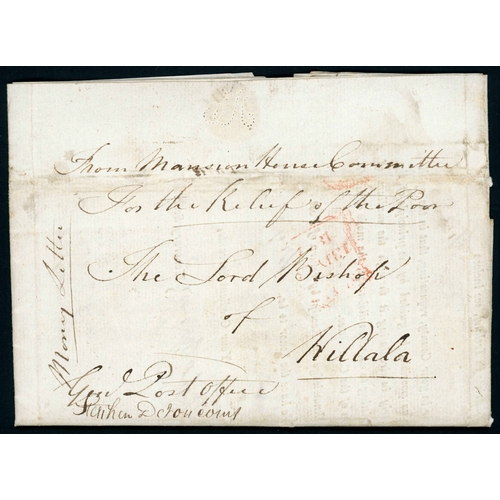 From Mansion House Committee
For the Relief of the Poor
The Lord Bishop
of
Killala
Genl Post Office
Stephen
Money Letter